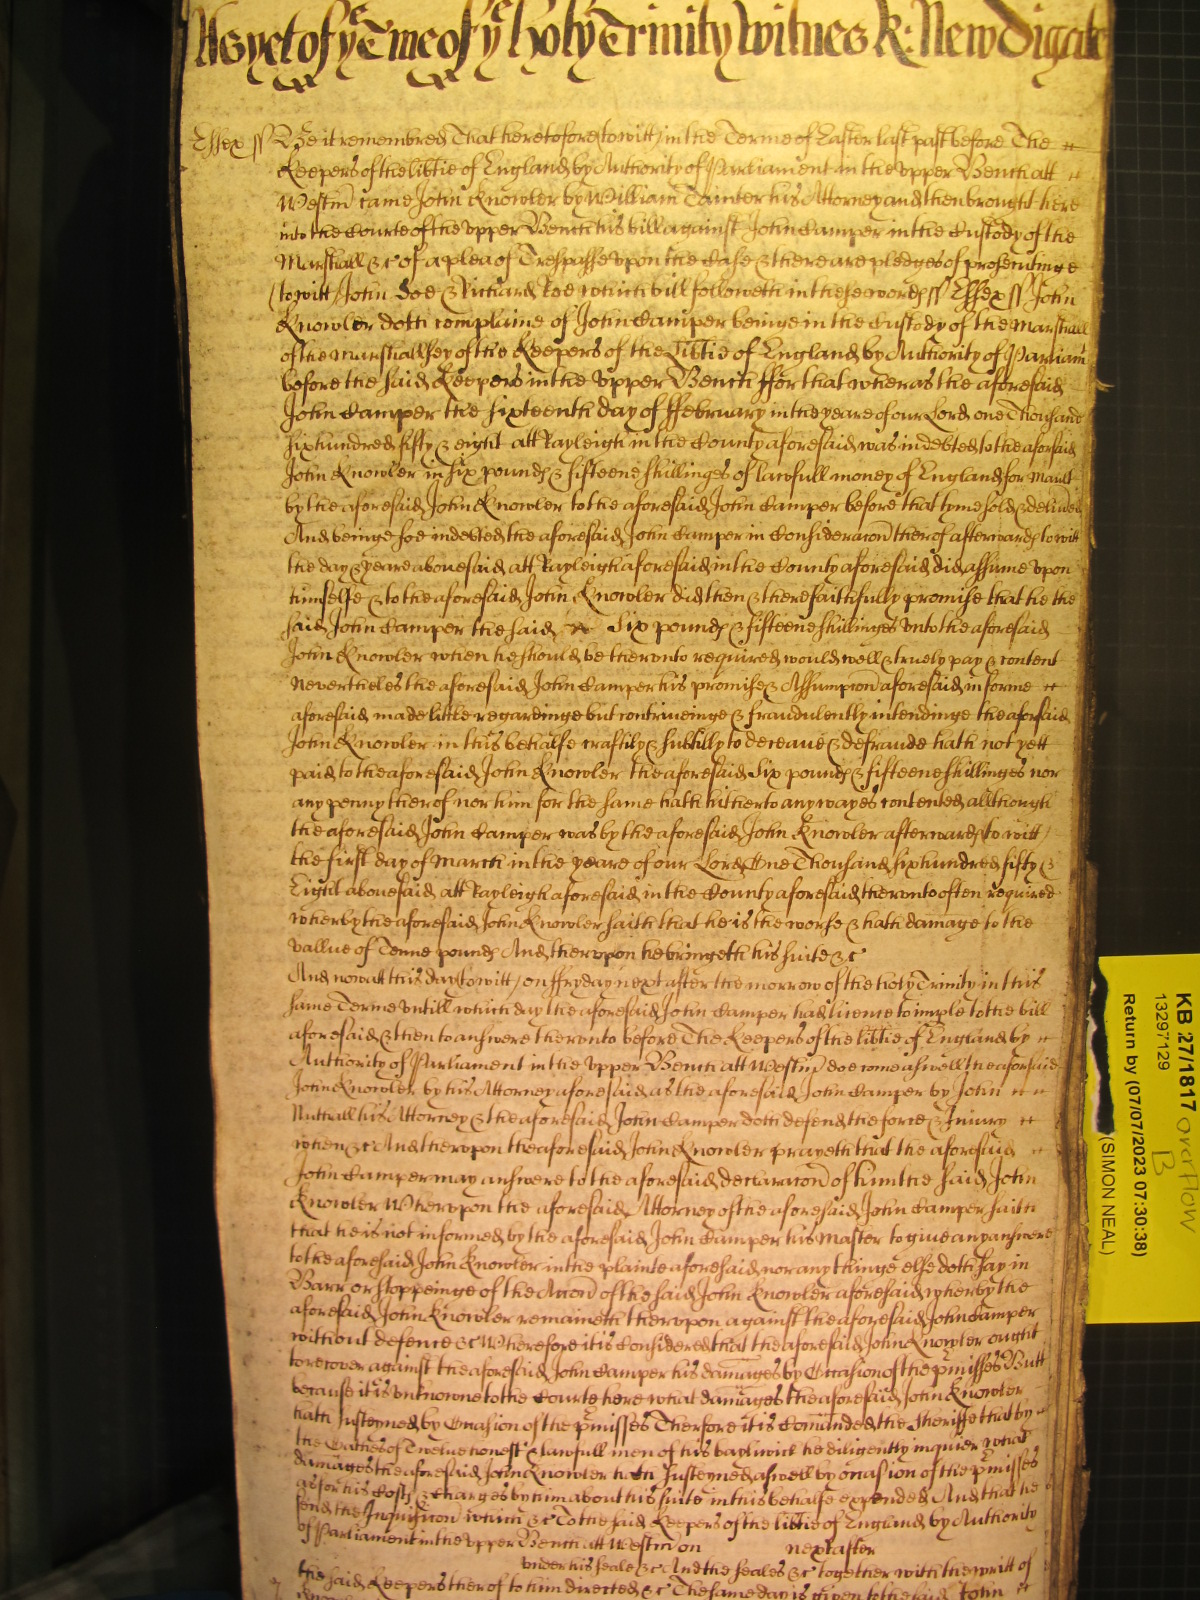 As yet of yᵉ Tme of yᵉ holy Trinity Witnes R: New Digate
Essex ss Be it remembred That heretofore (to witt) in the Terme of Easter last past before The
Keepers of the libtie of England by Authority of Parliament in the vpper Bench att
Westm̄ came John Knowler by William Tainter his Attorney and then brought here
into the Courte of the vpper Bench his bill against John Camper in the Custody of the
Marshall &c of a plea of Trespasse vpon the Case & there are pledges of prosecutinge
(to witt) John Doe & Richard Roe which bill followeth in these words ss Essex ss John
Knowler doth complaine of John Camper beinge in the Custody of the Marshall
of the Marshallsey of the Keepers of the Libtie of England by Authority of Parliam
before the said Keepers in the vpper Bench ffor that wheras the aforesaid
John Camper the sixteenth day of ffebruary in the yeare of our Lord one Thousand
six hundred fifty & eight att Rayleigh in the County aforesaid was indebted to the aforsaid
John Knowler in six pounds & fifteene shillinges of lawfull money of England for Mault
by the aforesaid John Knowler to the aforesaid John Camper before that tyme sold & delived
And beinge soe indebted the aforesaid John Camper in Consideracon therof afterwards to witt
the day & yeare abouesaid att Rayleigh aforesaid in the County aforesaid did assume vpon
himselfe & to the aforesaid John Knowler did then & there faithfully promise that he the
said John Camper the said Six pounds & fifteene shillinges vnto the aforesaid
John Knowler when he should be thervnto required would well & truely pay & content
Neverthelees the aforesaid John Camper his promise & Assumpcon aforesaid in forme
aforesaid made little regardinge but contriueinge & fraudulently intendinge the aforsaid
John Knowler in this behalfe craftily & subtilly to deceaue & defraude hath not yett
paid to the aforesaid John Knowler the aforesaid Six pounds & fifteene shillinges nor
any penny therof nor him for the same hath hitherto any wayes contented allthough
the aforesaid John Camper was by the aforesaid John Knowler afterwards (to witt)
the first day of March in the yeare of our Lord One Thousand six hundred fifty &
Eight abouesaid att Rayleigh aforesaid in the County aforesaid thervnto often required
wherby the aforesaid John Knowler saith that he is the worse & hath damage to the
vallue of Tenne pounds And thervpon he bringeth his suite &c
And now att this day (to witt) on ffryday next after the morrow of the holy Trinity in this
same Terme vntill which day the aforesaid John Camper had licence to imple to the bill
aforesaid & then to answere thervnto before The Keepers of the libtie of England by
Authority of Parliament in the vpper Bench att Westm̄ doe come aswell the aforsaid
John Knowler by his Attorney aforesaid as the aforesaid John Camper by John
Nuthall his Attorney & the aforesaid John Camper doth defend the force & Iniury
when &c And thervpon the aforesaid John Knowler prayeth that the aforesaid
John Camper may answere to the aforesaid declaracon of him the said John
Knowler Whervpon the aforesaid Attorney of the aforesaid John Camper saith
that he is not informed by the aforesaid John Camper his Master to giue any answere
to the aforesaid John Knowler in the plainte aforesaid nor any thinge else doth say in
Barr or stoppeinge of the Accon of the said John Knowler aforesaid wherby the
aforesaid John Knowler remaineth thervpon against the aforesaid John Camper
without defence &c Wherefore it is Considered that the aforesaid John Knowler ought
to recover against the aforesaid John Camper his damages by Occasion of the pmisses Butt
because it is vnknowne to the Courte here what damages the aforesaid John Knowler
hath susteyned by Occasion of the pmisses Therfore it is Comanded the Sheriffe that by
the Oathes of Twelue honest & lawfull men of his baylywick he diligently inquier what
damages the aforesaid John Knowler hath susteyned aswell by occasion of the pmisses
as for his Costs & Charges by him about his suite in this behalfe expended And that he
send the Inquisicon which &c To the said Keepers of the libtie of England by Authority
of Parliament in the vpper Bench att Westm̄ on next after
vnder his seale &c And the seales &c together with the writt of
the said Keepers therof to him directed &c The same day is given to the said John
KB 27/1817 overflow
13297129 B
Return by (07/07/2023 07:30:38)
(SIMON NEAL)